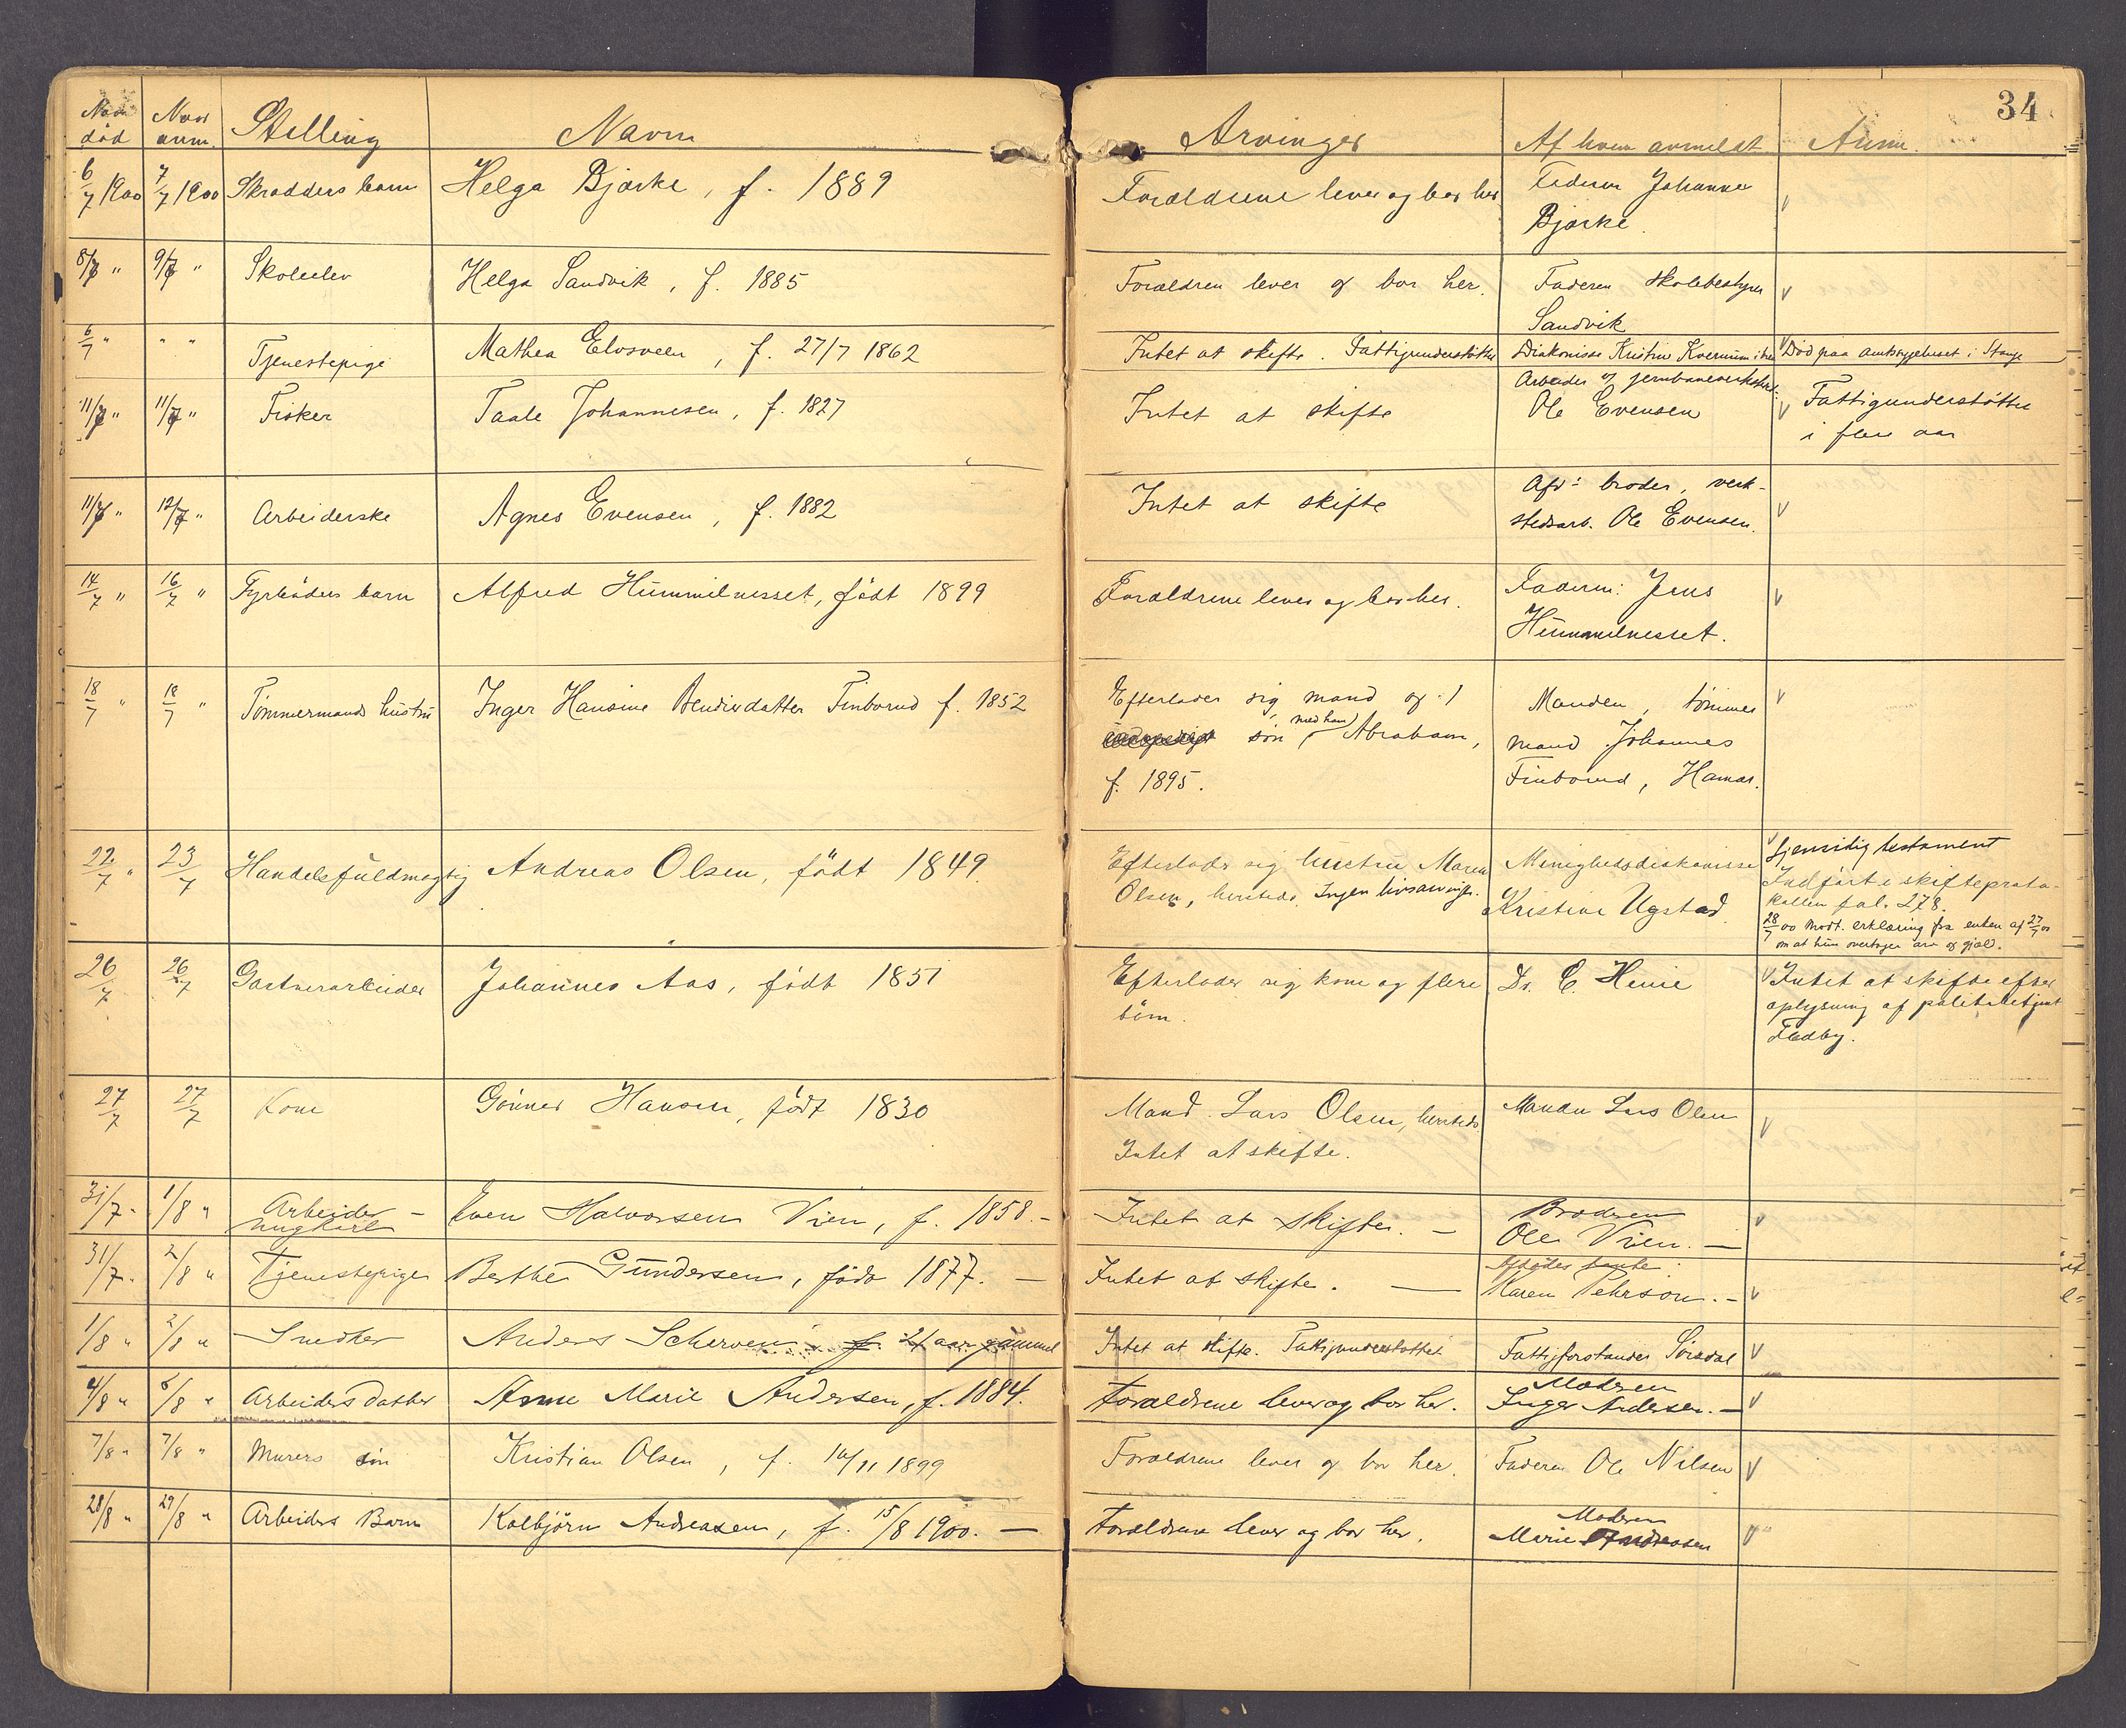 34
Naar død Naar anm. Stilling Navn Arvinger Af hvem anmeldt Anm.
6/7 1900 7/7 1900 Skrædders barn Helga Bjørke, f. 1889 Forældrene lever og bor her Faderen Johannes
Bjørke.
8/7 " 9/7 " Skoleelev Helga Sandvik, f. 1885 Forældren lever og bor her. Faderen skolebestyrer
Sandvik
6/7 " " " Tjenestepige Mathea Elvsveen, f. 27/7 1862 Intet at skifte. Fattigunderstøttet Diakonisse Kristine Død paa amtssygehuset i Stange
11/7 " 11/7 " Fisker Taale Johannesen, f. 1827 Intet at skifte Arbeider v jernbaneverksted.
Ole Evensen Fattigunderstøttet
i flere aar
11/7 " 12/7 " Arbeiderske Agnes Evensen, f. 1882 Intet at skifte Afd: broder, verk-
stedsarb. Ole Evensen.
14/7 " 16/7 " Fyrbøders barn Alfred Hummelnesset, født 1899 Forældrene lever og bor her. Faderen: Jens
Hummelnesset.
18/7 " 18/7 " Tømmermands hustru Inger Hansine Bendixdatter Finborud f. 1852 Efterlader sig mand og 1 Manden, tømmer
søn, med ham Abraham, mand Johannes
f. 1895. Finborud, Hamar.
22/7 " 23/7 Handelsfuldmægtig Andreas Olsen, født 1849. Efterlader sig hustru Maren Menighedsdiakonisse Gjensidig testament
Olsen, hersteds. Ingen livsarvinger. Kristine Ugstad. Indført i skifteproto-
kollen fol. 278.
28/7 00 modt. erklæring fra enken af 27/7 00
om at hun overtager arv og gjæld.
26/7 26/7 Gartnerarbeider Johannes Aas, født 1851 Efterlader sig kone og flere Dr. C. Heie Intet at skifte efter
børn. oplysning af politibetjent
Flodby.
27/7 27/7 Kone Gunner Hansen, født 1830 Mand Lars Olsen, hersteds. Manden Lars Olsen
Intet at skifte.
31/7 " 1/8 " Arbeider – Even Halvorsen Vien, f. 1858. – Intet at skifte. – Broderen
ungkarl Ole Vien. –
31/7 " 2/8 " Tjenestepige Berthe Gundersen, født 1877. – Intet at skifte. – Afdødes tante:
Karen Pehrson. –
1/8 " 2/8 " Snedker Anders Scherven f. 21 aar gammel Intet at skifte. Fattigunderstøttet Fattigforstander Sørsdal
4/8 " 6/8 " Arbeiders datter Anne Marie Andersen, f. 1884. Forældrene lever og bor her. Moderen
Inger Andersen. –
7/8 " 7/8 " Murers søn Kristian Olsen, f. 10/11 1899 Forældrene lever og bor her. Faderen Ole Nilsen
28/8 " 29/8 " Arbeiders Barn Kolbjørn Andreasen, f. 15/8 1900. – Forældrene lever og bor her. Moderen
Marie Andreasen